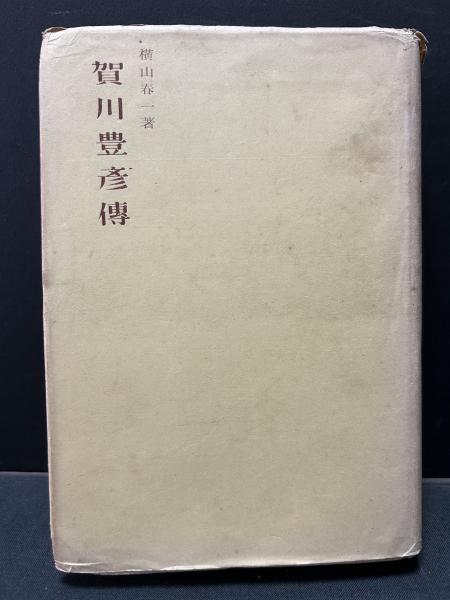 横山春一著
賀川豊彦傳